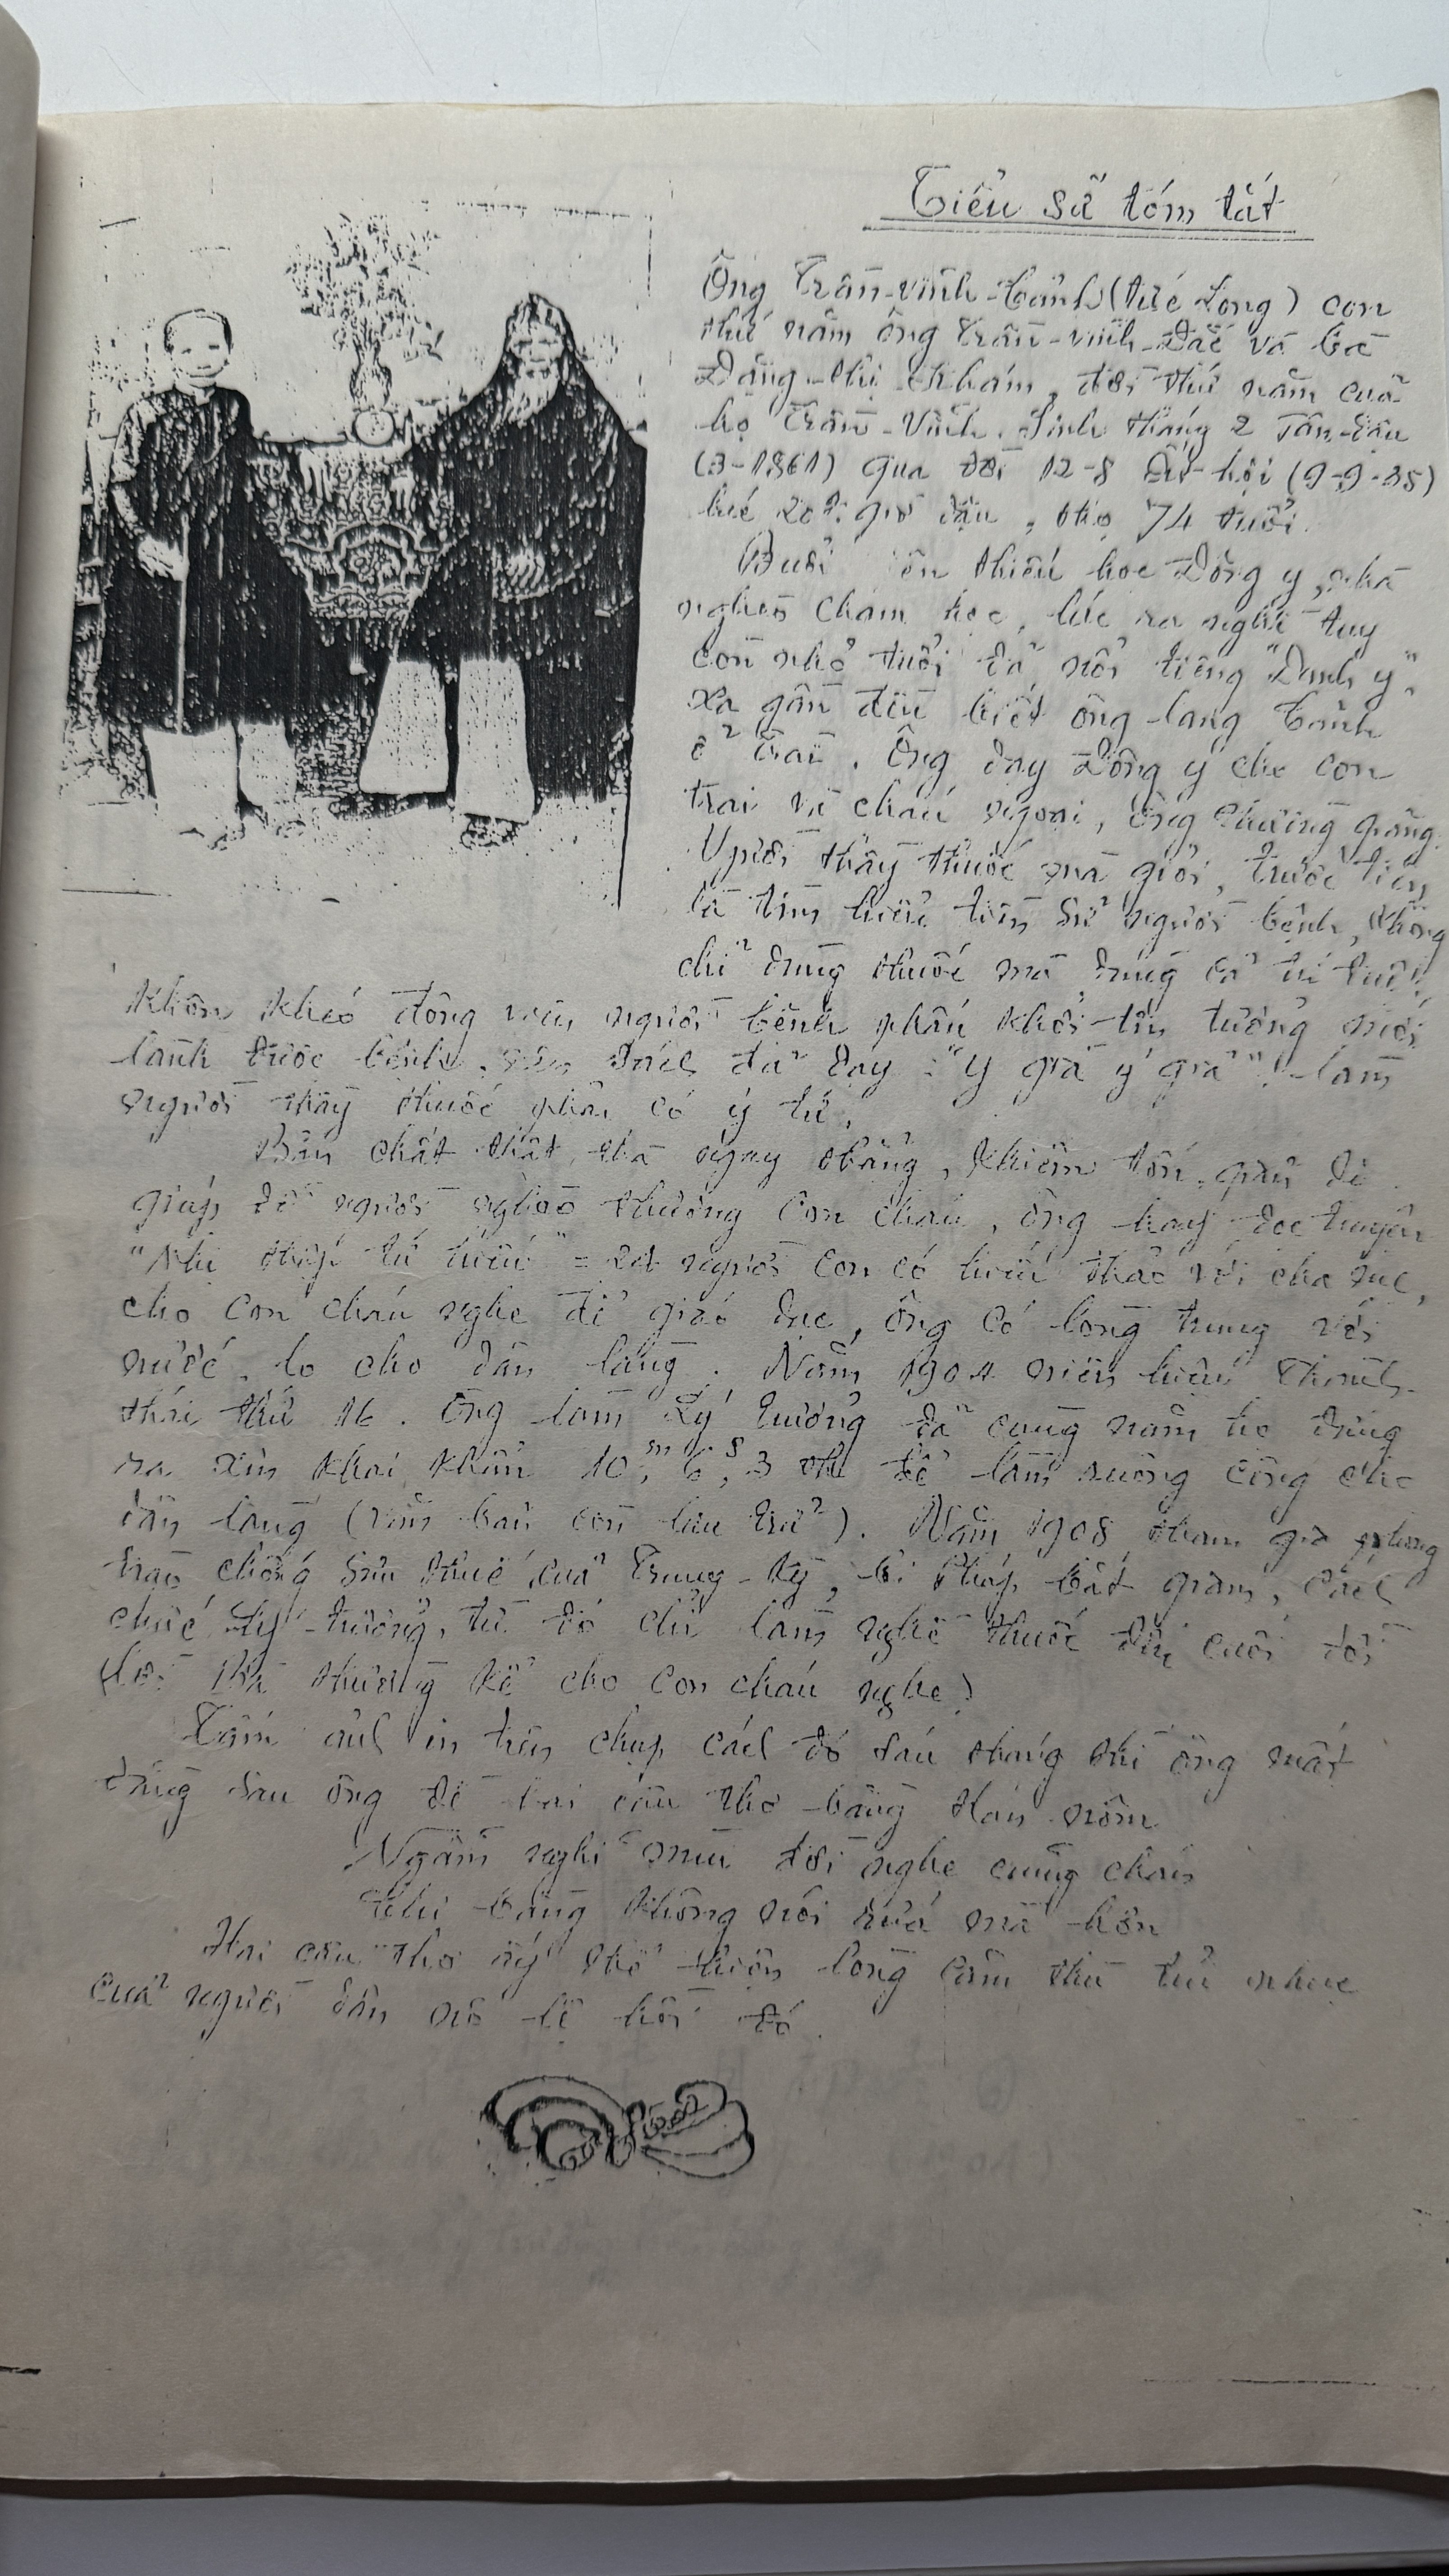 Tiểu sử tóm tắt
Ông Trần-vĩnh-Cảnh (tức Long) con
thứ năm ông Trần-vĩnh-Đắc và bà
Đặng-thị-Khám, đời thứ năm của
họ Trần-Vĩnh. Sinh tháng 2 Tân-dậu
(3-1861) qua đời 12-8 Ất-hợi (9-9-35)
giờ dậu, thọ 74 tuổi.
Buổi thiếu học Đông y, nhà
nghèo chăm học, lúc ra nghề tuy
còn nhỏ tuổi đã nổi tiếng "Danh y",
xa gần đều biết ông lang Cảnh
ở Ông dạy Đông y cho con
trai và cháu ngoại, ông thường giảng.
Người thầy thuốc mà giỏi, trước tiên
là tìm hiểu tiền sử người bệnh, không
chỉ dùng thuốc mà dùng cả trí tuệ
khôn khéo động viên người bệnh phấn khởi tin tưởng mới
lành được bệnh, đã dạy: "y giả ý giả"! làm
người thầy thuốc phải có ý tứ.
Bản chất thật thà ngay thẳng, khiêm tốn, giản dị
giúp đỡ người nghèo thương con cháu, ông hay đọc truyện
"Nhị thập tứ hiếu" = 24 người con có hiếu thảo với cha mẹ,
cho con cháu nghe để giáo dục, ông có lòng trung với
nước, lo cho dân làng. Năm 1904 niên hiệu Thành-
thái thứ 16. Ông làm Lý trưởng đã cùng năm họ đứng
ra xin khai khẩn 10m, 6s, 3 th để làm ruộng công cho
dân làng (văn bản còn lưu trữ). Năm 1908 tham gia phong
trào chống sưu thuế của Trung-kỳ, bị Pháp bắt giam, cách
chức Lý-trưởng, từ đó chỉ làm nghề thuốc đến cuối đời
(lời Bà thường kể cho con cháu nghe)
Tấm ảnh in trên chụp cách đó sáu tháng thì ông mất
đằng sau ông đề hai câu thơ bằng Hán nôm
Ngẫm nghĩ mùi đời nghe cũng chán
Chi bằng không nói rứa mà hơn
Hai câu thơ ấy thể hiện lòng căm thù tủi nhục
của người dân nô lệ hồi đó.